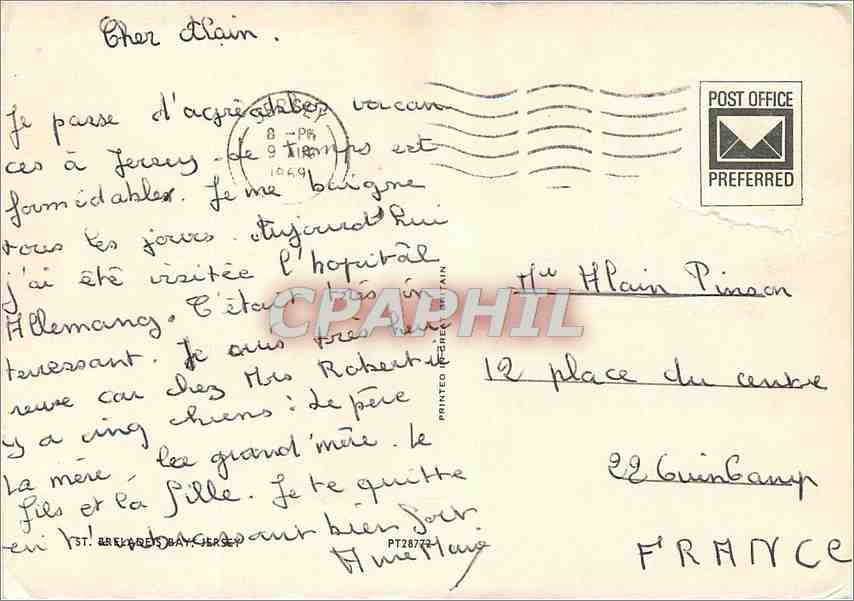 Cher Alain.
Je passe d'agréables vacan
ces à Jersey. Le temps est
formidable. Je me baigne
tous les jours. Aujourd'hui
j'ai été visitée l'hopitâl
Allemang. C'était très in
terressant. Je suis très heu
reuse car chez Mrs Robert il
y a cinq chiens: Le père
La mère, la grand'mère. Le
fils et la fille. Je te quitte
en t'embrassant bien fort
Anne Marie
JERSEY
8 - PM
9
1969
POST OFFICE
PREFERRED
Alain Pinson
12 place du centre
22 Guincamp
FRANCE
PRINTED IN GREAT BRITAIN
CPAPHIL
ST. BRELADE'S BAY, JERSEY
PT28772